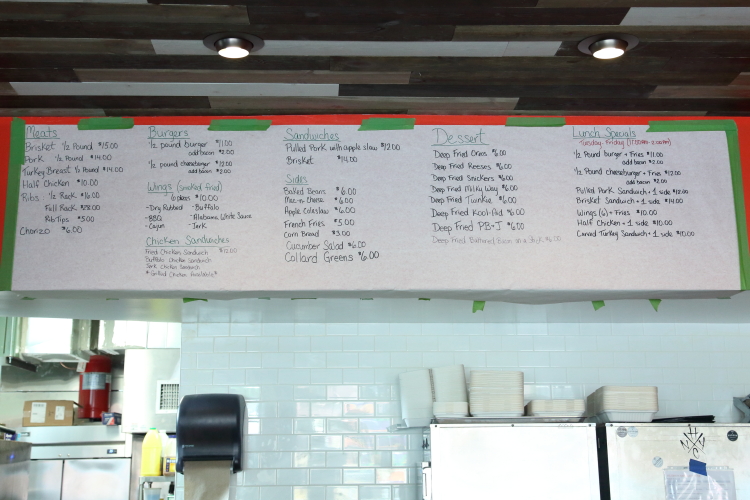 Meats
Brisket ½ Pound $15.00
Pork ½ Pound $14.00
Turkey Breast ½ Pound $14.00
Half Chicken $10.00
Ribs ½ Rack $16.00
Full Rack
Rib Tips $5.00
Chorizo $6.00
Burgers
½ pound burger $11.00
add bacon $2.00
½ pound cheeseburger $12.00
add bacon $2.00
Wings (smoked fried)
6 pieces $10.00
-Dry Rubbed - Buffalo
-BBQ - Alabama White Sauce
-Cajun - Jerk
Chicken Sandwiches
Fried Chicken Sandwich $10.00
Buffalo Chicken Sandwich
Jerk Chicken Sandwich
*Grilled Chicken Available*
Sandwiches
Pulled Pork with apple slaw $12.00
Brisket $14.00
Sides
Baked Beans $6.00
Mac-n-Cheese $6.00
Apple Coleslaw $6.00
French Fries $5.00
Corn Bread $3.00
Cucumber Salad $6.00
Collard Greens $6.00
Dessert
Deep Fried Oreos $6.00
Deep Fried Reeses $6.00
Deep Fried Snickers $6.00
Deep Fried Milky Way $6.00
Deep Fried Twinkie $6.00
Deep Fried Kool-Aid $6.00
Deep Fried PB-J $6.00
Deep Fried Battered Bacon on a Stick $6.00
Lunch Specials
Tuesday-Friday (11:00AM-2:00PM)
½ Pound burger + Fries $11.00
add bacon $2.00
½ Pound cheeseburger + Fries $12.00
add bacon $2.00
Pulled Pork Sandwich + 1 side $12.00
Brisket Sandwich + 1 side $14.00
Wings (6) + Fries $10.00
Half Chicken + 1 side $10.00
Carved Turkey Sandwich + 1 side $10.00